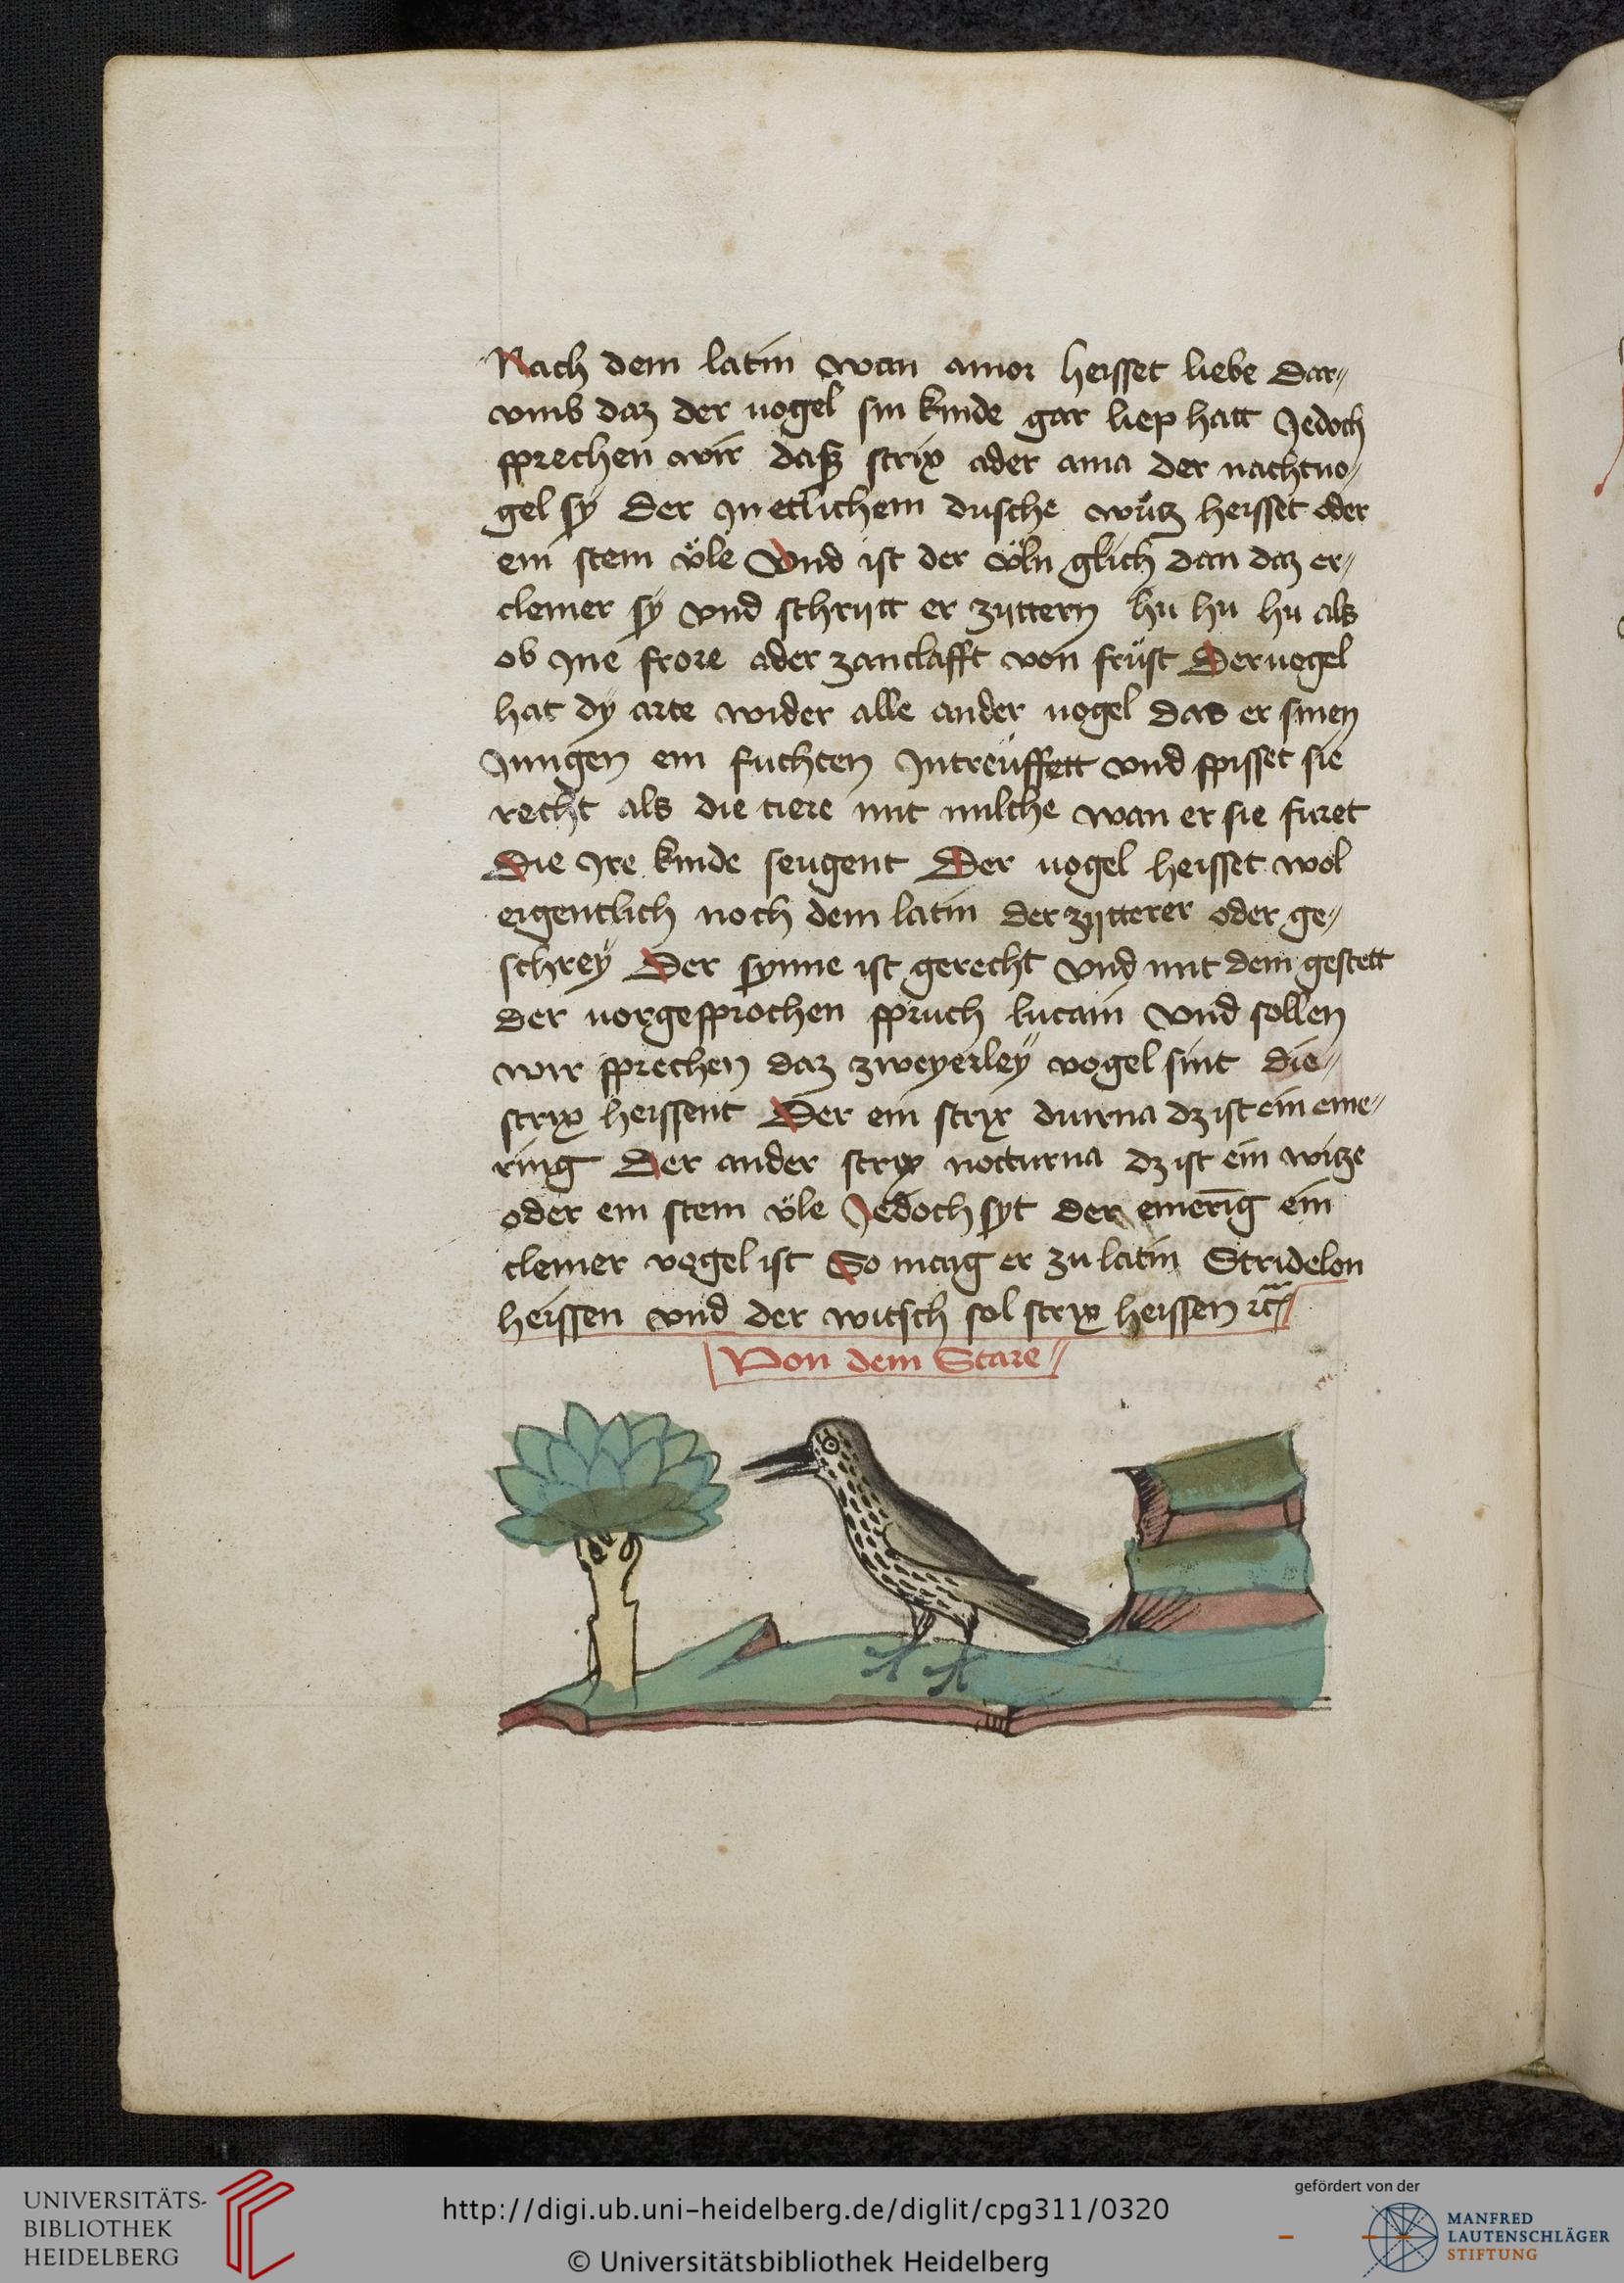 Nach dem latin wan amor heisset liebe dar„
vmb daz der uogel sin kinde gar liep hatt Jedoch
sprechen wir dasz strix ader ama der nachtuo„
gel sÿ der Jn etlichem dusche wu̍tz heisset oder
ein stein v̈le Vnd ist der v̈ln glich dan daz er„
cleiner sÿ vnd schrijtt er zijttern hu hu hu als
ob Jne frore ader zanclafft von frűst Der uogel
hat dÿ arte wider alle ander uogel das er sinen
Jungen ein fuchten Jntreűffett vnd spisset sie
recht als die tiere mit milche wan er sie furet
Die Jre kinde seugent Der uogel heisset wol
eigentlich noch dem latin der zijtterer oder ge„
schreÿ Der synne ist gerecht vnd mit dem gestett
der uorgesprochen spruch lucain Vnd sollen
wir sprechen daz zweyerleÿ vogel sint die„
strix heissent Der ein strix diurna dz ist ein eme„
ring Der ander strix nocturna dz ist ein witze
oder ein stein v̈le Jedoch syt der emerīg ein
cleiner vogel ist So mag er zu latin Stridelon
heissen vnd der witsch sol strix heissen ꝛc̃
Von dem Stare„
UNIVERSITÄTS-
BIBLIOTHEK
HEIDELBERG
http://digi.ub.uni-heidelberg.de/diglit/cpg311/0320
© Universitätsbibliothek Heidelberg
gefördert von der
MANFRED
LAUTENSCHLÄGER
STIFTUNG